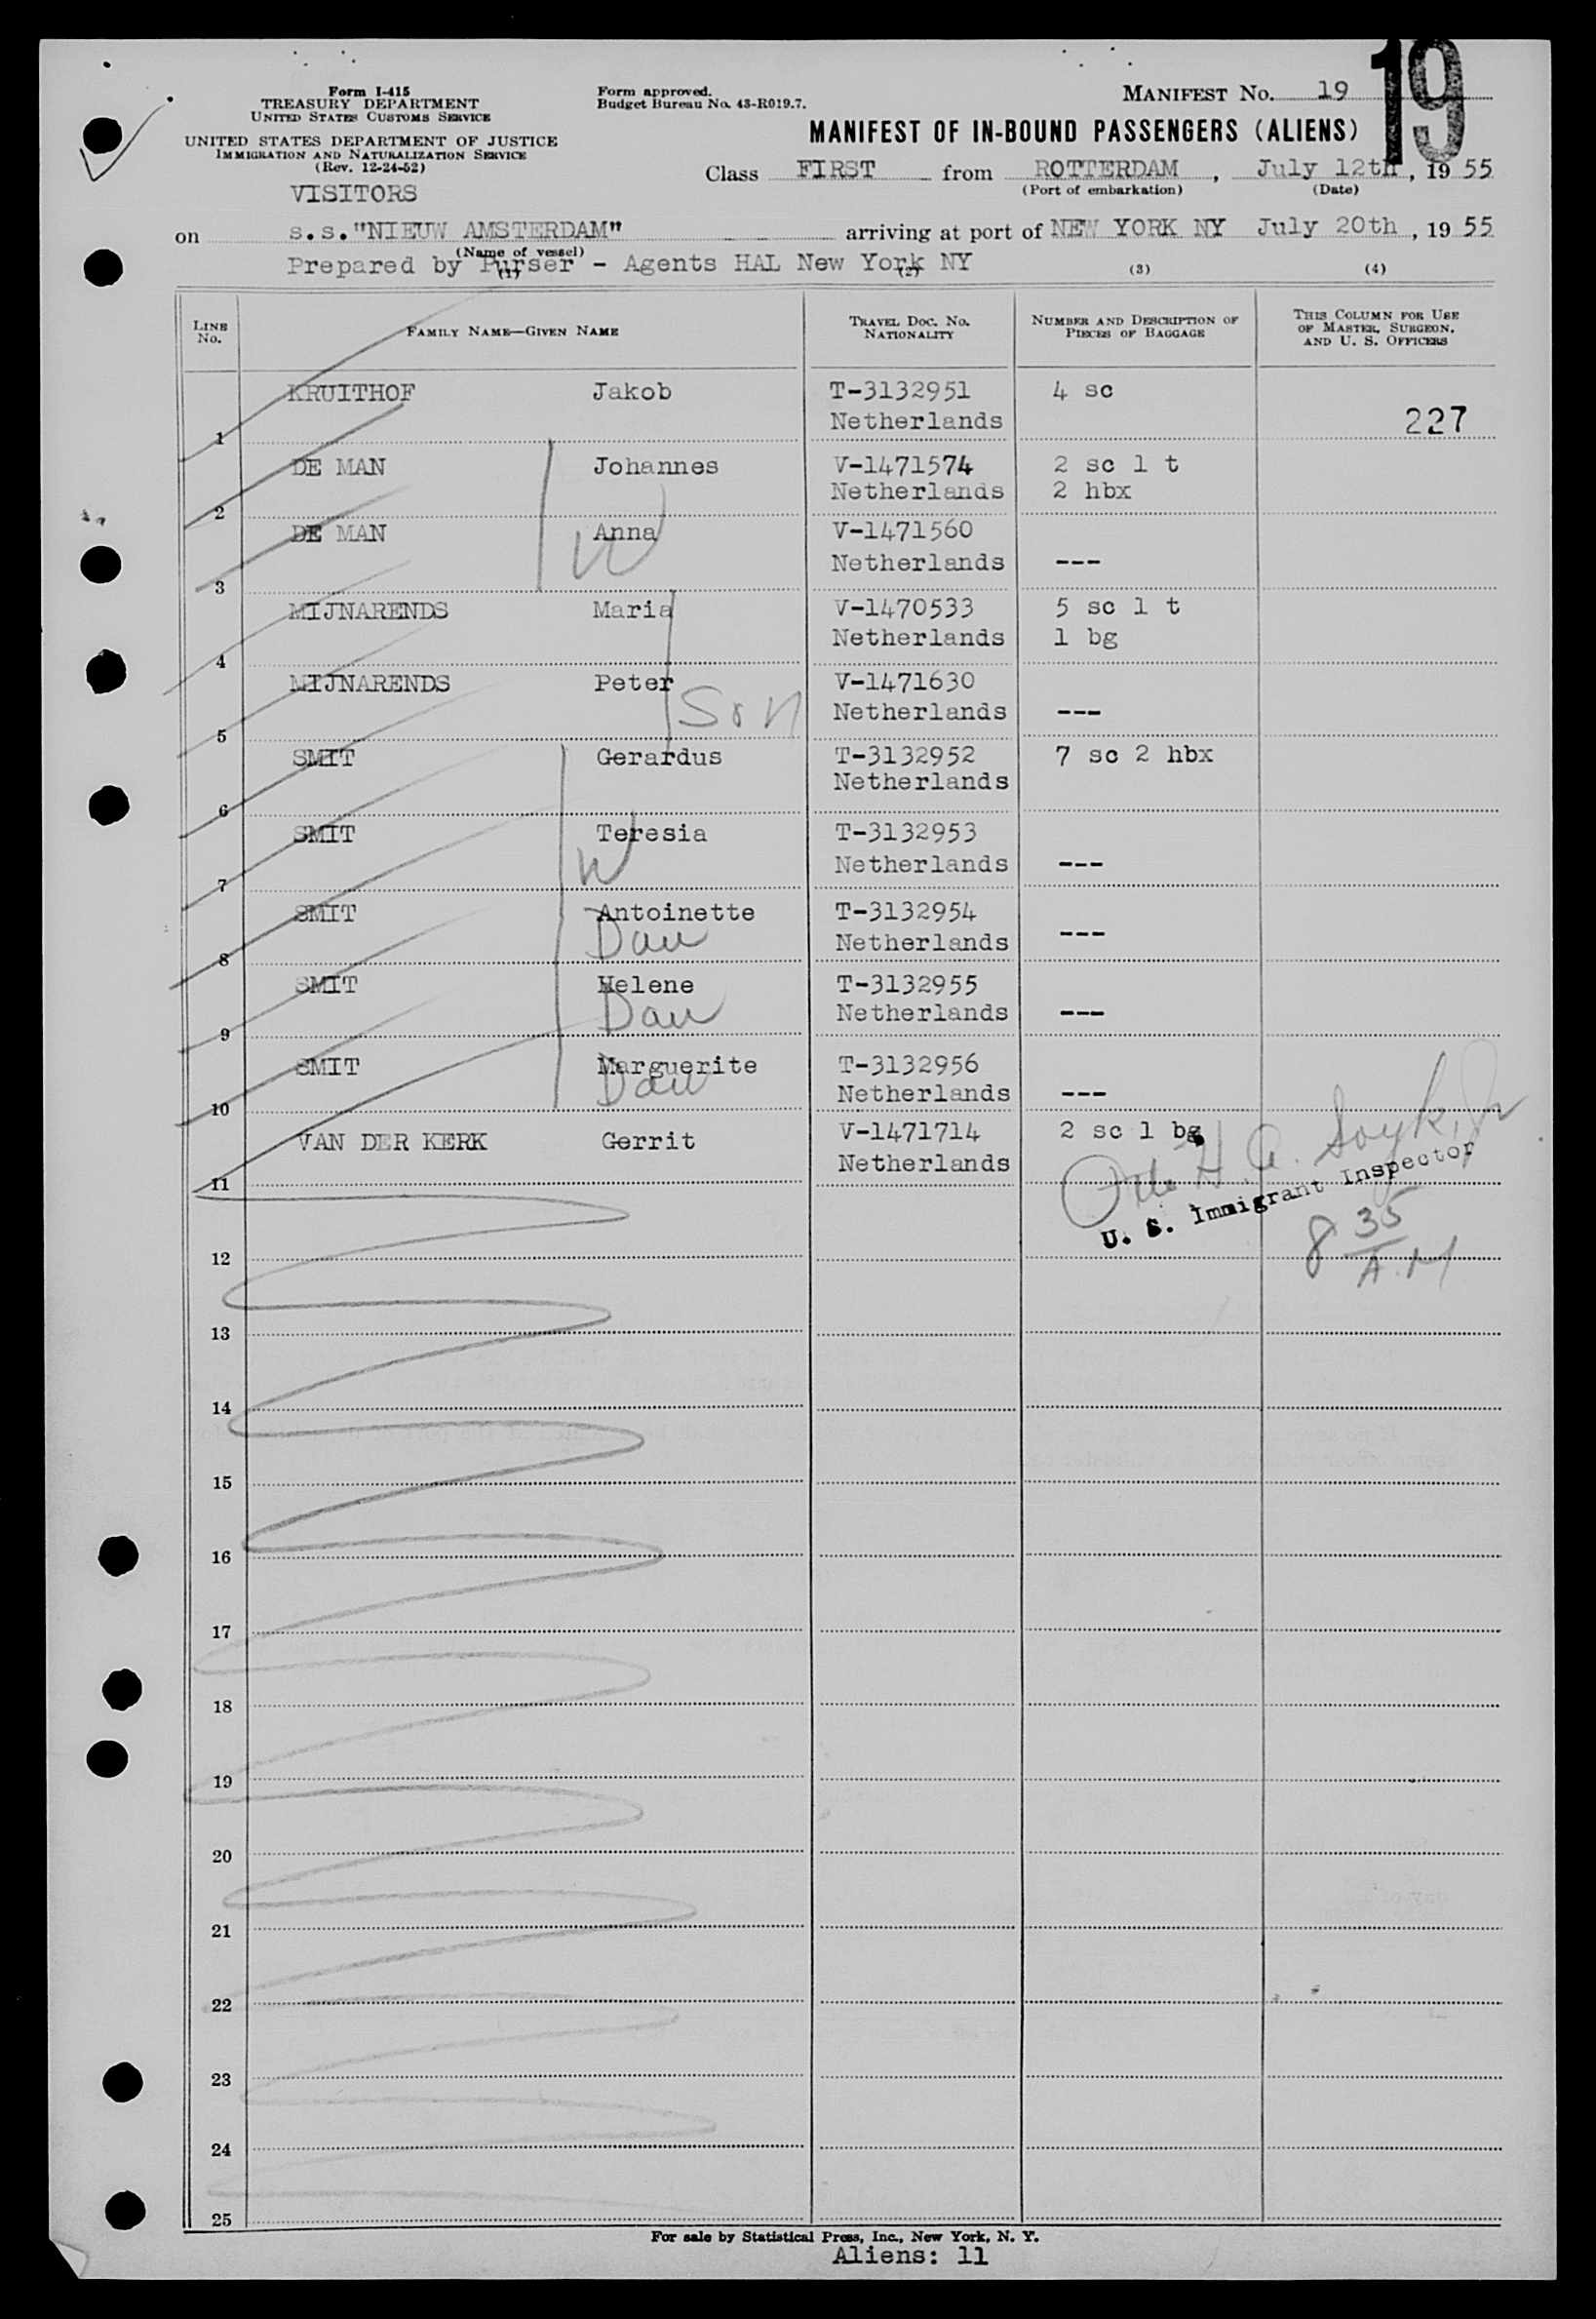 19
Form I-415
TREASURY DEPARTMENT
UNITED STATES CUSTOMS SERVICE
UNITED STATES DEPARTMENT OF JUSTICE
IMMIGRATION AND NATURALIZATION SERVICE
(Rev. 12-24-52)
VISITORS
Form approved.
Budget Bureau No. 43-R019.7.
MANIFEST NO. 19
MANIFEST OF IN-BOUND PASSENGERS (ALIENS)
Class FIRST from ROTTERDAM, July 12th, 1955
(Port of embarkation) (Date)
on s.s."NIEUW AMSTERDAM" arriving at port of NEW YORK NY July 20th, 1955
(Name of vessel)
Prepared by Purser - Agents HAL New York NY
(1) (2) (3) (4)
LINE NO. FAMILY NAME—GIVEN NAME TRAVEL DOC. NO. NATIONALITY NUMBER AND DESCRIPTION OF PIECES OF BAGGAGE THIS COLUMN FOR USE OF MASTER, SURGEON, AND U. S. OFFICERS
KRUITHOF Jakob T-3132951 4 sc
1 Netherlands 227
DE MAN Johannes V-1471574 2 sc 1 t
2 Netherlands 2 hbx
DE MAN Anna V-1471560
3 W Netherlands ---
MIJNARENDS Maria V-1470533 5 sc 1 t
4 Netherlands 1 bg
MIJNARENDS Peter V-1471630
5 Son Netherlands ---
SMIT Gerardus T-3132952 7 sc 2 hbx
6 Netherlands
SMIT Teresia T-3132953
7 W Netherlands ---
SMIT Antoinette T-3132954
8 Dau Netherlands ---
SMIT Helene T-3132955
9 Dau Netherlands ---
SMIT Marguerite T-3132956
10 Dau Netherlands ---
VAN DER KERK Gerrit V-1471714 2 sc 1 bg
11 Netherlands
U. S. Immigrant Inspector
8 35
A.M
12
13
14
15
16
17
18
19
20
21
22
23
24
25
For sale by Statistical Press, Inc., New York, N. Y.
Aliens: 11